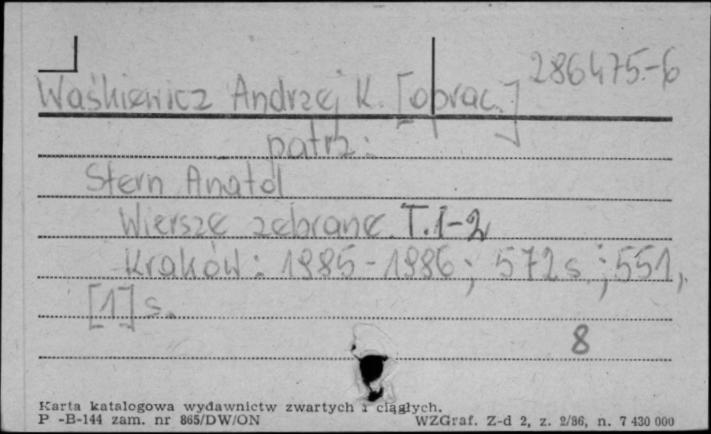 286475-6
Waśkiewicz Andrzej K. [oprac.]
patrz:
Stern Anatol
Wiersze zebrane. T.1-2
Kraków: 1985-1986; 572 s.; 551,
[1] s.
8
Karta katalogowa wydawnictw zwartych i ciągłych.
P -B-144 zam. nr 865/DW/ON WZGraf. Z-d 2, z. 2/86, n. 7 430 000